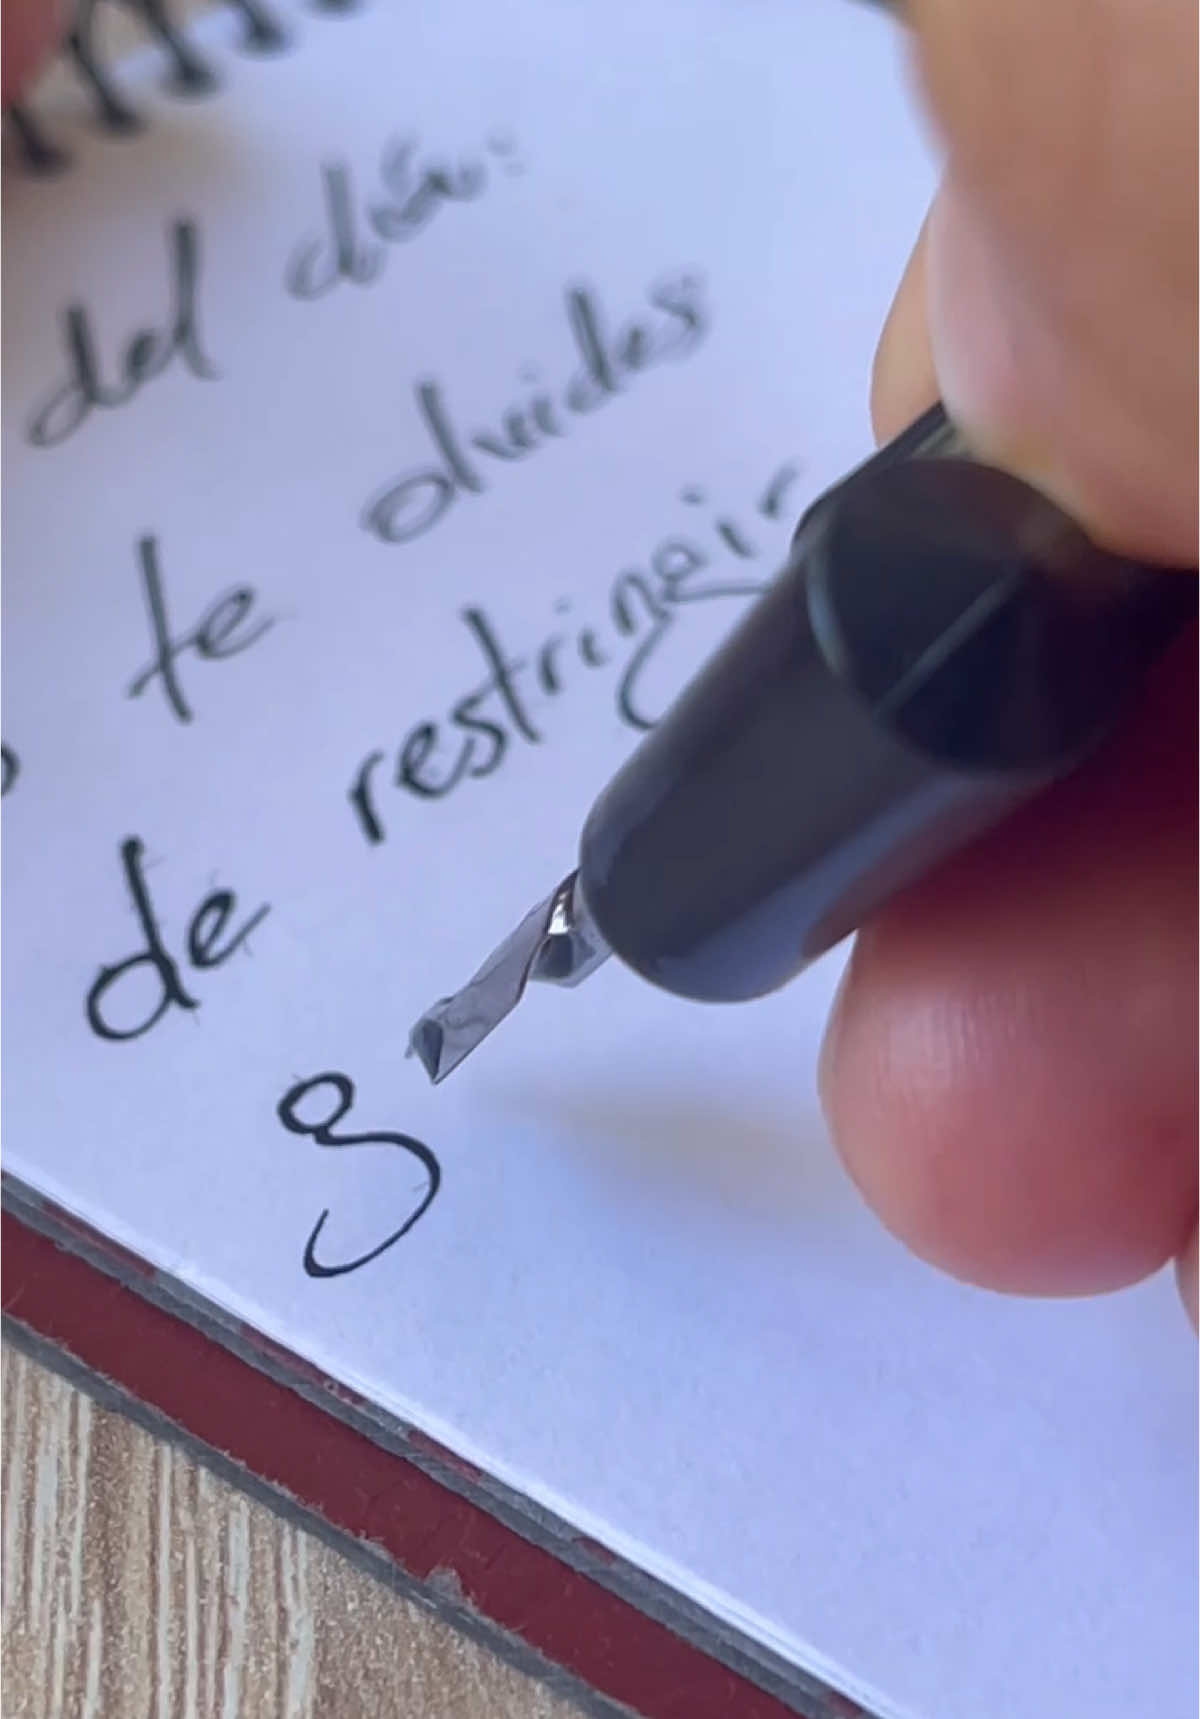 del día:
te olvides
de restringir
g